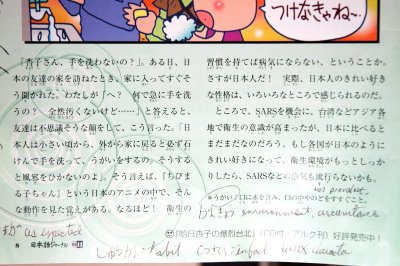 つけなきゃね~
「杏子さん、手を洗わないの？」。ある日、日
本の友達の家を訪ねたとき、家に入ってすぐそ
う聞かれた。わたしが「へ？　何で急に手を洗
うの？　全然汚くないけど……」と答えると、
友達は不思議そうな顔をして、こう言った。「日
本人は小さい頃から、外から家に戻ると必ず石
けんで手を洗って、うがいをするの。そうする
と風邪をひかないのよ」。そう言えば、「ちびま
る子ちゃん」という日本のアニメの中で、そん
な動作を見た覚えがある。なるほど！　衛生の
習慣を持てば病気にならない、ということか。
さすが日本人だ！　実際、日本人のきれい好き
な性格は、いろいろなところで感じられるのだ。
ところで、SARSを機会に、台湾などアジア各
地で衛生の意識が高まったが、日本に比べると
まだまだなのだろう。もし各国が日本のように
きれい好きになって、衛生環境がもっとしっか
りしたら、SARSなどの病気も流行らないかも。
*うがい：口に水を含み、口の中やのどをすすぐこと。
『哈日杏子の爆烈台北』（CD付・アルク刊）好評発売中！
8 日本語ジャーナル
as expected
habit
environment, circumstance